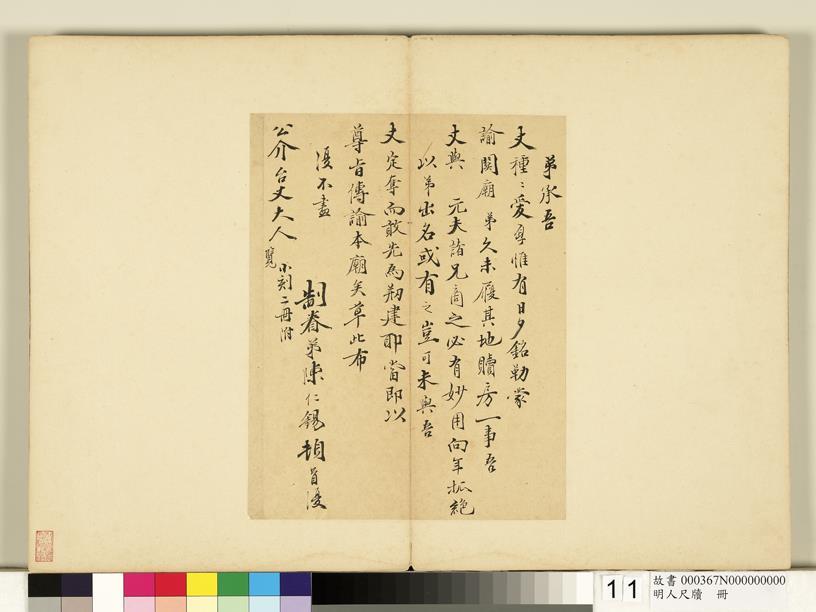 弟承吾
丈種種愛身惟有日夕銘勒蒙
諭関廟弟久未履其地贖房一事吾
丈與元夫諸兄商之必有妙用向年孤絶
以弟出名或有之豈可未與吾
丈定奪而敢先為剏建耶當即以
尊旨傳諭本廟矣草此布
復不盡
制眷弟陳仁錫頓首復
小刻二冊附
覽
公介台丈大人
11
故書 000367N000000000
明人尺牘 冊